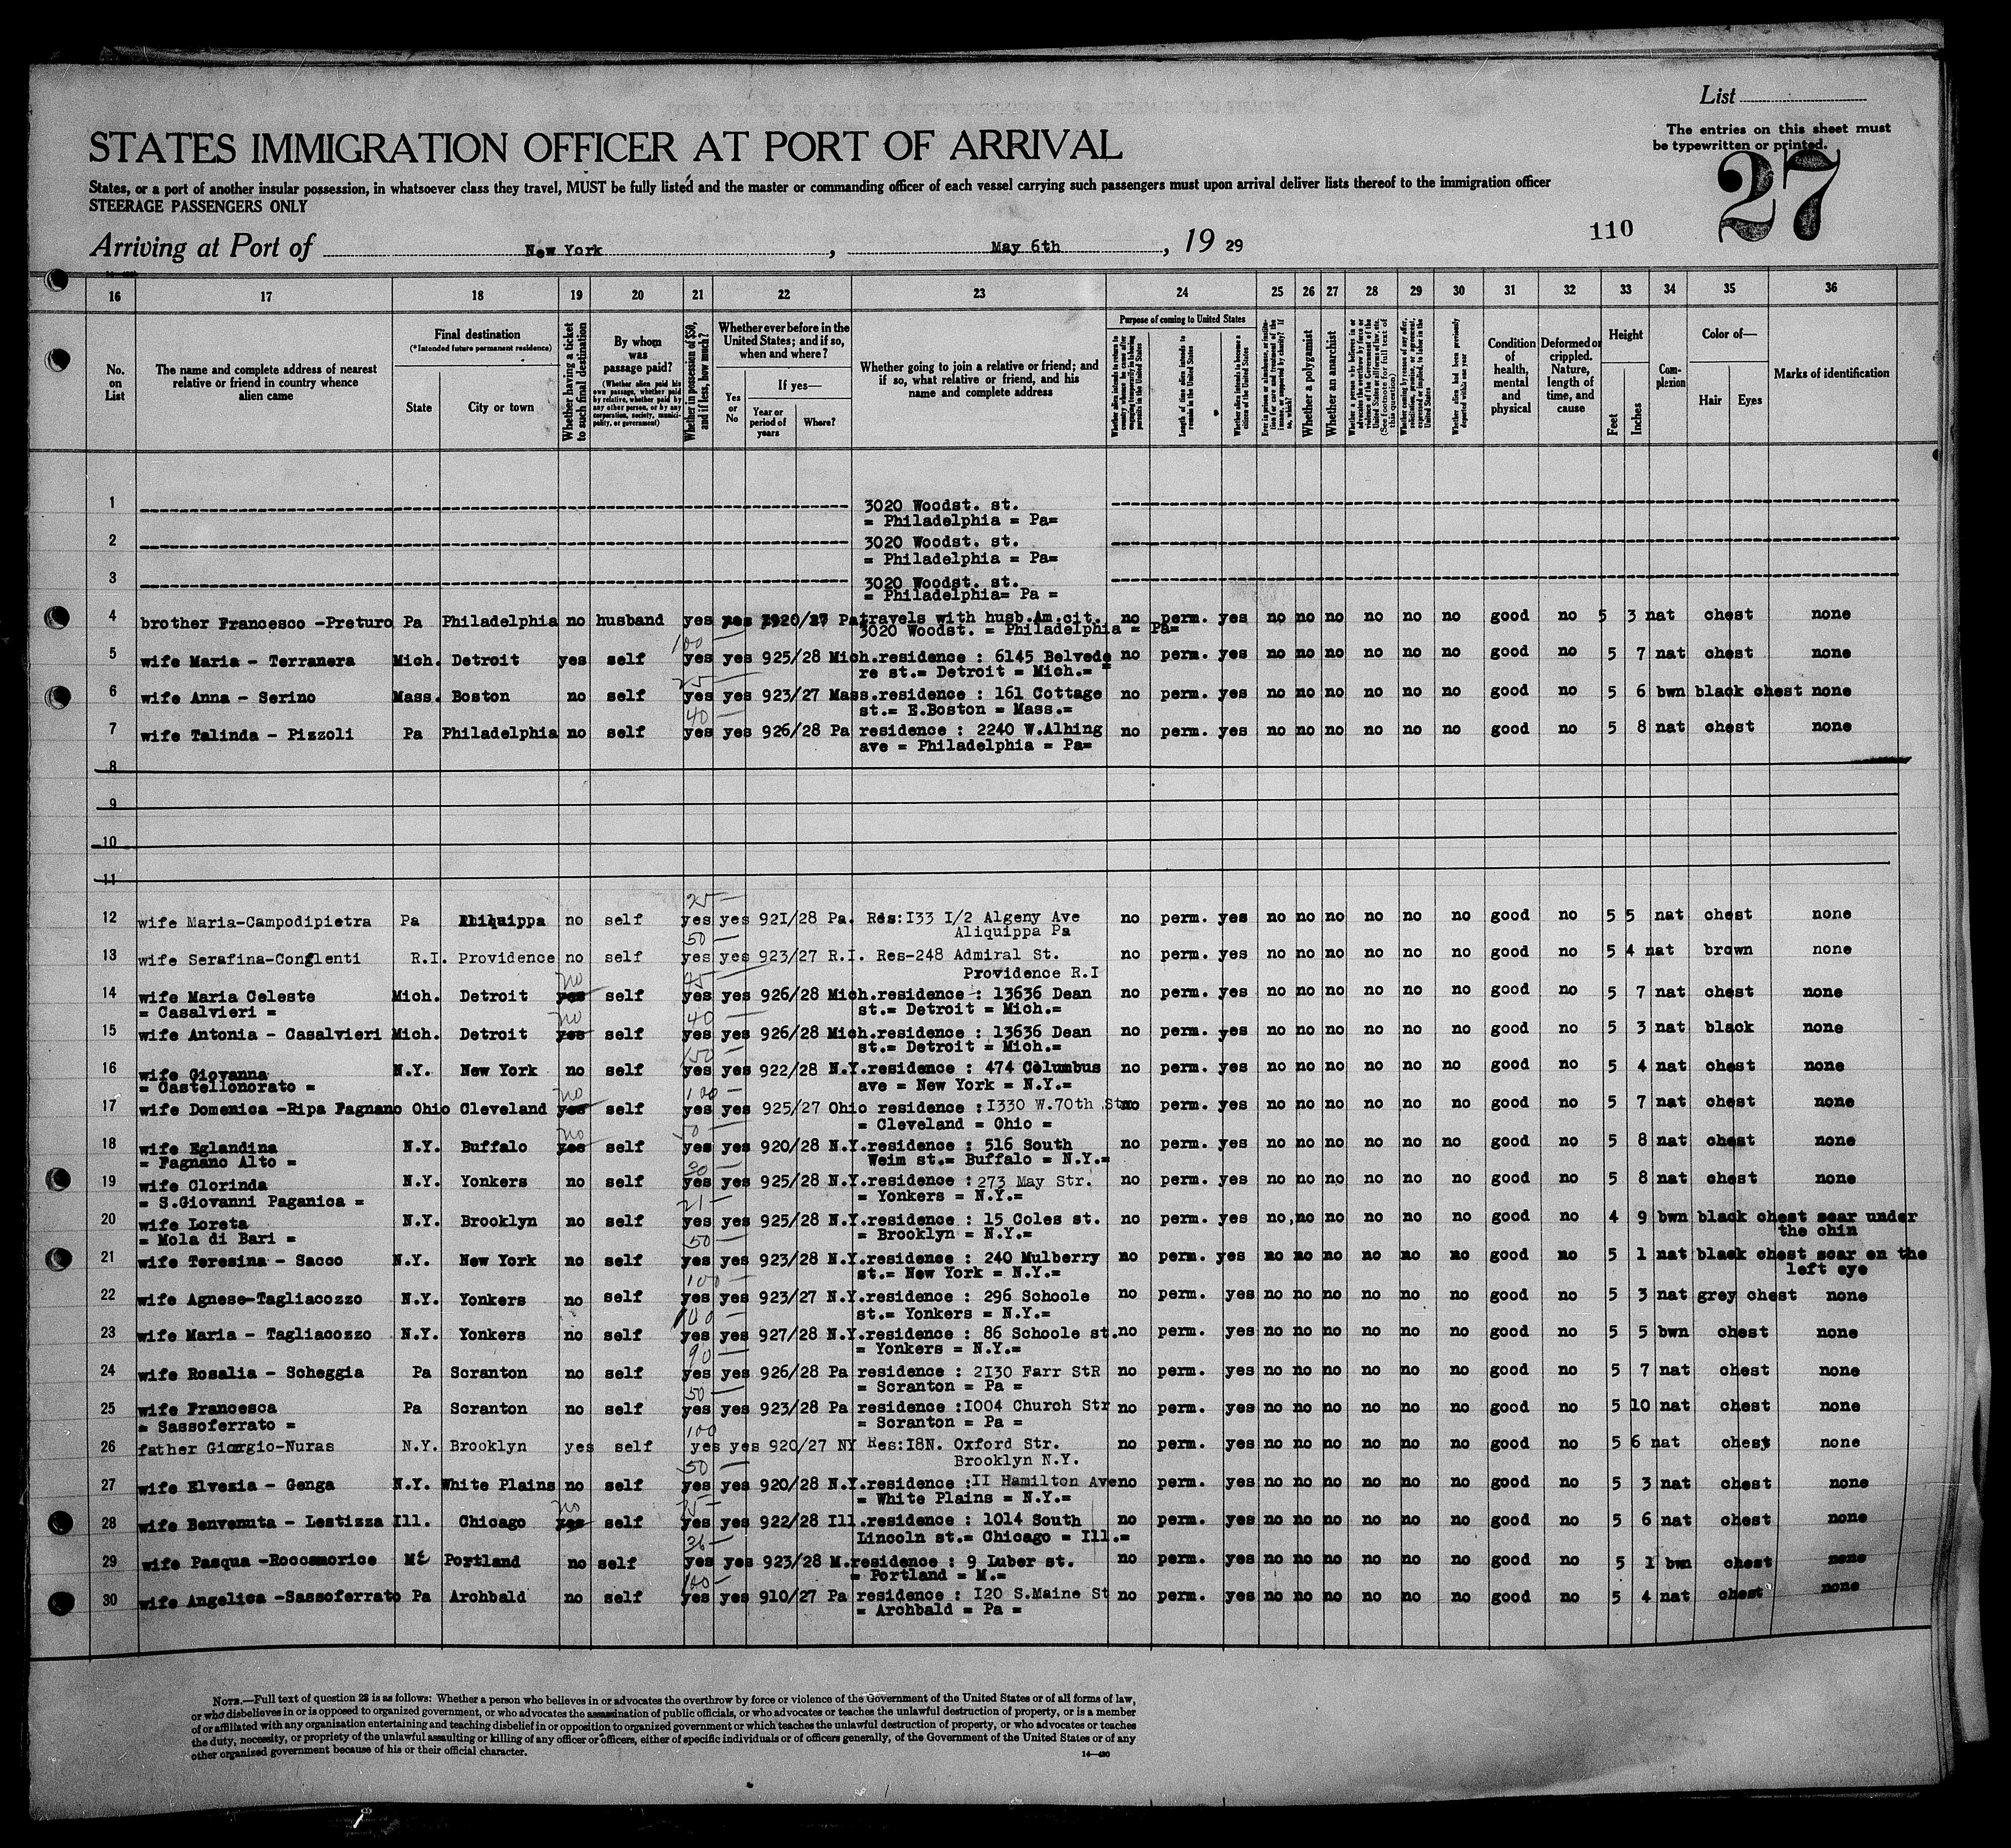 List
The entries on this sheet must
be typewritten or printed.
27
STATES IMMIGRATION OFFICER AT PORT OF ARRIVAL
States, or a port of another insular possession, in whatsoever class they travel, MUST be fully listed and the master or commanding officer of each vessel carrying such passengers must upon arrival deliver lists thereof to the immigration officer
STEERAGE PASSENGERS ONLY
110
Arriving at Port of New York , May 6th , 19 29
16 17 18 19 20 21 22 23 24 25 26 27 28 29 30 31 32 33 34 35 36
No. on List
The name and complete address of nearest relative or friend in country whence alien came
Final destination
(*Intended future permanent residence)
State
City or town
Whether having a ticket to such final destination
By whom was passage paid?
(Whether alien paid his own passage, whether paid by relative, whether paid by any other person, or by any corporation, society, municipality, or government)
Whether in possession of $50, and if less, how much?
Whether ever before in the United States; and if so, when and where?
Yes or No
If yes—
Year or period of years
Where?
Whether going to join a relative or friend; and if so, what relative or friend, and his name and complete address
Purpose of coming to United States
Length of time alien intends to remain in the United States
Whether alien intends to become a citizen of the United States
Whether a polygamist
Whether an anarchist
Condition of health, mental and physical
Deformed or crippled. Nature, length of time, and cause
Height
Feet
Inches
Complexion
Color of—
Hair
Eyes
Marks of identification
1 3020 Woodst. st.
= Philadelphia = Pa=
2 3020 Woodst. st.
= Philadelphia = Pa=
3 3020 Woodst. st.
= Philadelphia= Pa =
4 brother Francesco -Preturo Pa Philadelphia no husband yes yes 1920/27 Pa travels with husb.Am.cit. no perm. yes no no no no no no good no 5 3 nat chest none
3020 Woodst. = Philadelphia = Pa=
100
5 wife Maria - Terranera Mich. Detroit yes self yes yes 925/28 Mich.residence : 6145 Belvede no perm. yes no no no no no no good no 5 7 nat chest none
re st.= Detroit = Mich.=
25
6 wife Anna - Serino Mass. Boston no self yes yes 923/27 Mass.residence : 161 Cottage no perm. yes no no no no no no good no 5 6 bwn black chest none
st.= E.Boston = Mass.=
40
7 wife Talinda - Pizzoli Pa Philadelphia no self yes yes 926/28 Pa residence : 2240 W.Alhing no perm. yes no no no no no no good no 5 8 nat chest none
ave = Philadelphia = Pa=
8
9
10
11
25
12 wife Maria-Campodipietra Pa no self yes yes 921/28 Pa. Res:I33 I/2 Algeny Ave no perm. yes no no no no no no good no 5 5 nat chest none
Aliquippa Pa
50
13 wife Serafina-Conglenti R.I. Providence no self yes yes 923/27 R.I. Res-248 Admiral St. no perm. yes no no no no no no good no 5 4 nat brown none
Providence R.I
no
14 wife Maria Celeste Mich. Detroit yes self yes yes 926/28 Mich.residence : 13636 Dean no perm. yes no no no no no no good no 5 7 nat chest none
= Casalvieri = st.= Detroit = Mich.=
no 40
15 wife Antonia - Casalvieri Mich. Detroit yes self yes yes 926/28 Mich.residence : 13636 Dean no perm. yes no no no no no no good no 5 3 nat black none
st.= Detroit = Mich.=
150
16 wife Giovanna N.Y. New York no self yes yes 922/28 N.Y.residence : 474 Columbus no perm. yes no no no no no no good no 5 4 nat chest none
= Castellonorato = ave = New York = N.Y.=
no 100
17 wife Domenica -Ripa Fagnano Ohio Cleveland yes self yes yes 925/27 Ohio residence : I330 W.70th Str no perm. yes no no no no no no good no 5 7 nat chest none
= Cleveland = Ohio =
no 50
18 wife Eglandina N.Y. Buffalo yes self yes yes 920/28 N.Y.residence : 516 South no perm. yes no no no no no no good no 5 8 nat chest none
= Fagnano Alto = Weim st.= Buffalo = N.Y.=
30
19 wife Clorinda N.Y. Yonkers no self yes yes 925/28 N.Y.residence : 273 May Str. no perm. yes no no no no no no good no 5 8 nat chest none
= S.Giovanni Paganica = = Yonkers = N.Y.=
21
20 wife Loreta N.Y. Brooklyn no self yes yes 925/28 N.Y.residence : 15 Coles st. no perm. yes no no no no no no good no 4 9 bwn black chest scar under
= Mola di Bari = = Brooklyn = N.Y.= the chin
50
21 wife Teresina - Sacco N.Y. New York no self yes yes 923/28 N.Y.residence : 240 Mulberry no perm. yes no no no no no no good no 5 1 nat black chest scar on the
st.= New York = N.Y.= left eye
100
22 wife Agnese-Tagliacozzo N.Y. Yonkers no self yes yes 923/27 N.Y.residence : 296 Schoole no perm. yes no no no no no no good no 5 3 nat grey chest none
st.= Yonkers = N.Y.=
100
23 wife Maria - Tagliacozzo N.Y. Yonkers no self yes yes 927/28 N.Y.residence : 86 Schoole st. no perm. yes no no no no no no good no 5 5 bwn chest none
= Yonkers = N.Y.=
90
24 wife Rosalia - Scheggia Pa Scranton no self yes yes 926/28 Pa residence : 2I30 Farr StR no perm. yes no no no no no no good no 5 7 nat chest none
= Scranton = Pa =
50
25 wife Francesca Pa Scranton no self yes yes 923/28 Pa residence :I004 Church Str no perm. yes no no no no no no good no 5 10 nat chest none
= Sassoferrato = = Scranton = Pa =
100
26 father Giorgio-Nuras N.Y. Brooklyn yes self yes yes 920/27 NY Res:I8N. Oxford Str. no perm. yes no no no no no no good no 5 6 nat chest none
Brooklyn N.Y.
50
27 wife Elvezia - Genga N.Y. White Plains no self yes yes 920/28 N.Y.residence :II Hamilton Ave no perm. yes no no no no no no good no 5 3 nat chest none
= White Plains = N.Y.=
no
28 wife Benvenuta - Lestizza Ill. Chicago yes self yes yes 922/28 Ill.residence : 1014 South no perm. yes no no no no no no good no 5 6 nat chest none
Lincoln st.= Chicago = Ill.=
36
29 wife Pasqua -Roccamorice ME Portland no self yes yes 923/28 M.residence : 9 Luber st. no perm. yes no no no no no no good no 5 1 bwn chest none
= Portland = M.=
100
30 wife Angelica -Sassoferrato Pa Archbald no self yes yes 910/27 Pa residence : I20 S.Maine St no perm. yes no no no no no no good no 5 4 nat chest none
= Archbald = Pa =
NOTE.—Full text of question 28 is as follows: Whether a person who believes in or advocates the overthrow by force or violence of the Government of the United States or of all forms of law,
or who disbelieves in or is opposed to organized government, or who advocates the assassination of public officials, or who advocates or teaches the unlawful destruction of property, or is a member
of or affiliated with any organization entertaining and teaching disbelief in or opposition to organized government or which teaches the unlawful destruction of property, or who advocates or teaches
the duty, necessity, or propriety of the unlawful assaulting or killing of any officer or officers, either of specific individuals or of officers generally, of the Government of the United States or of any
other organized government because of his or their official character.
14—430